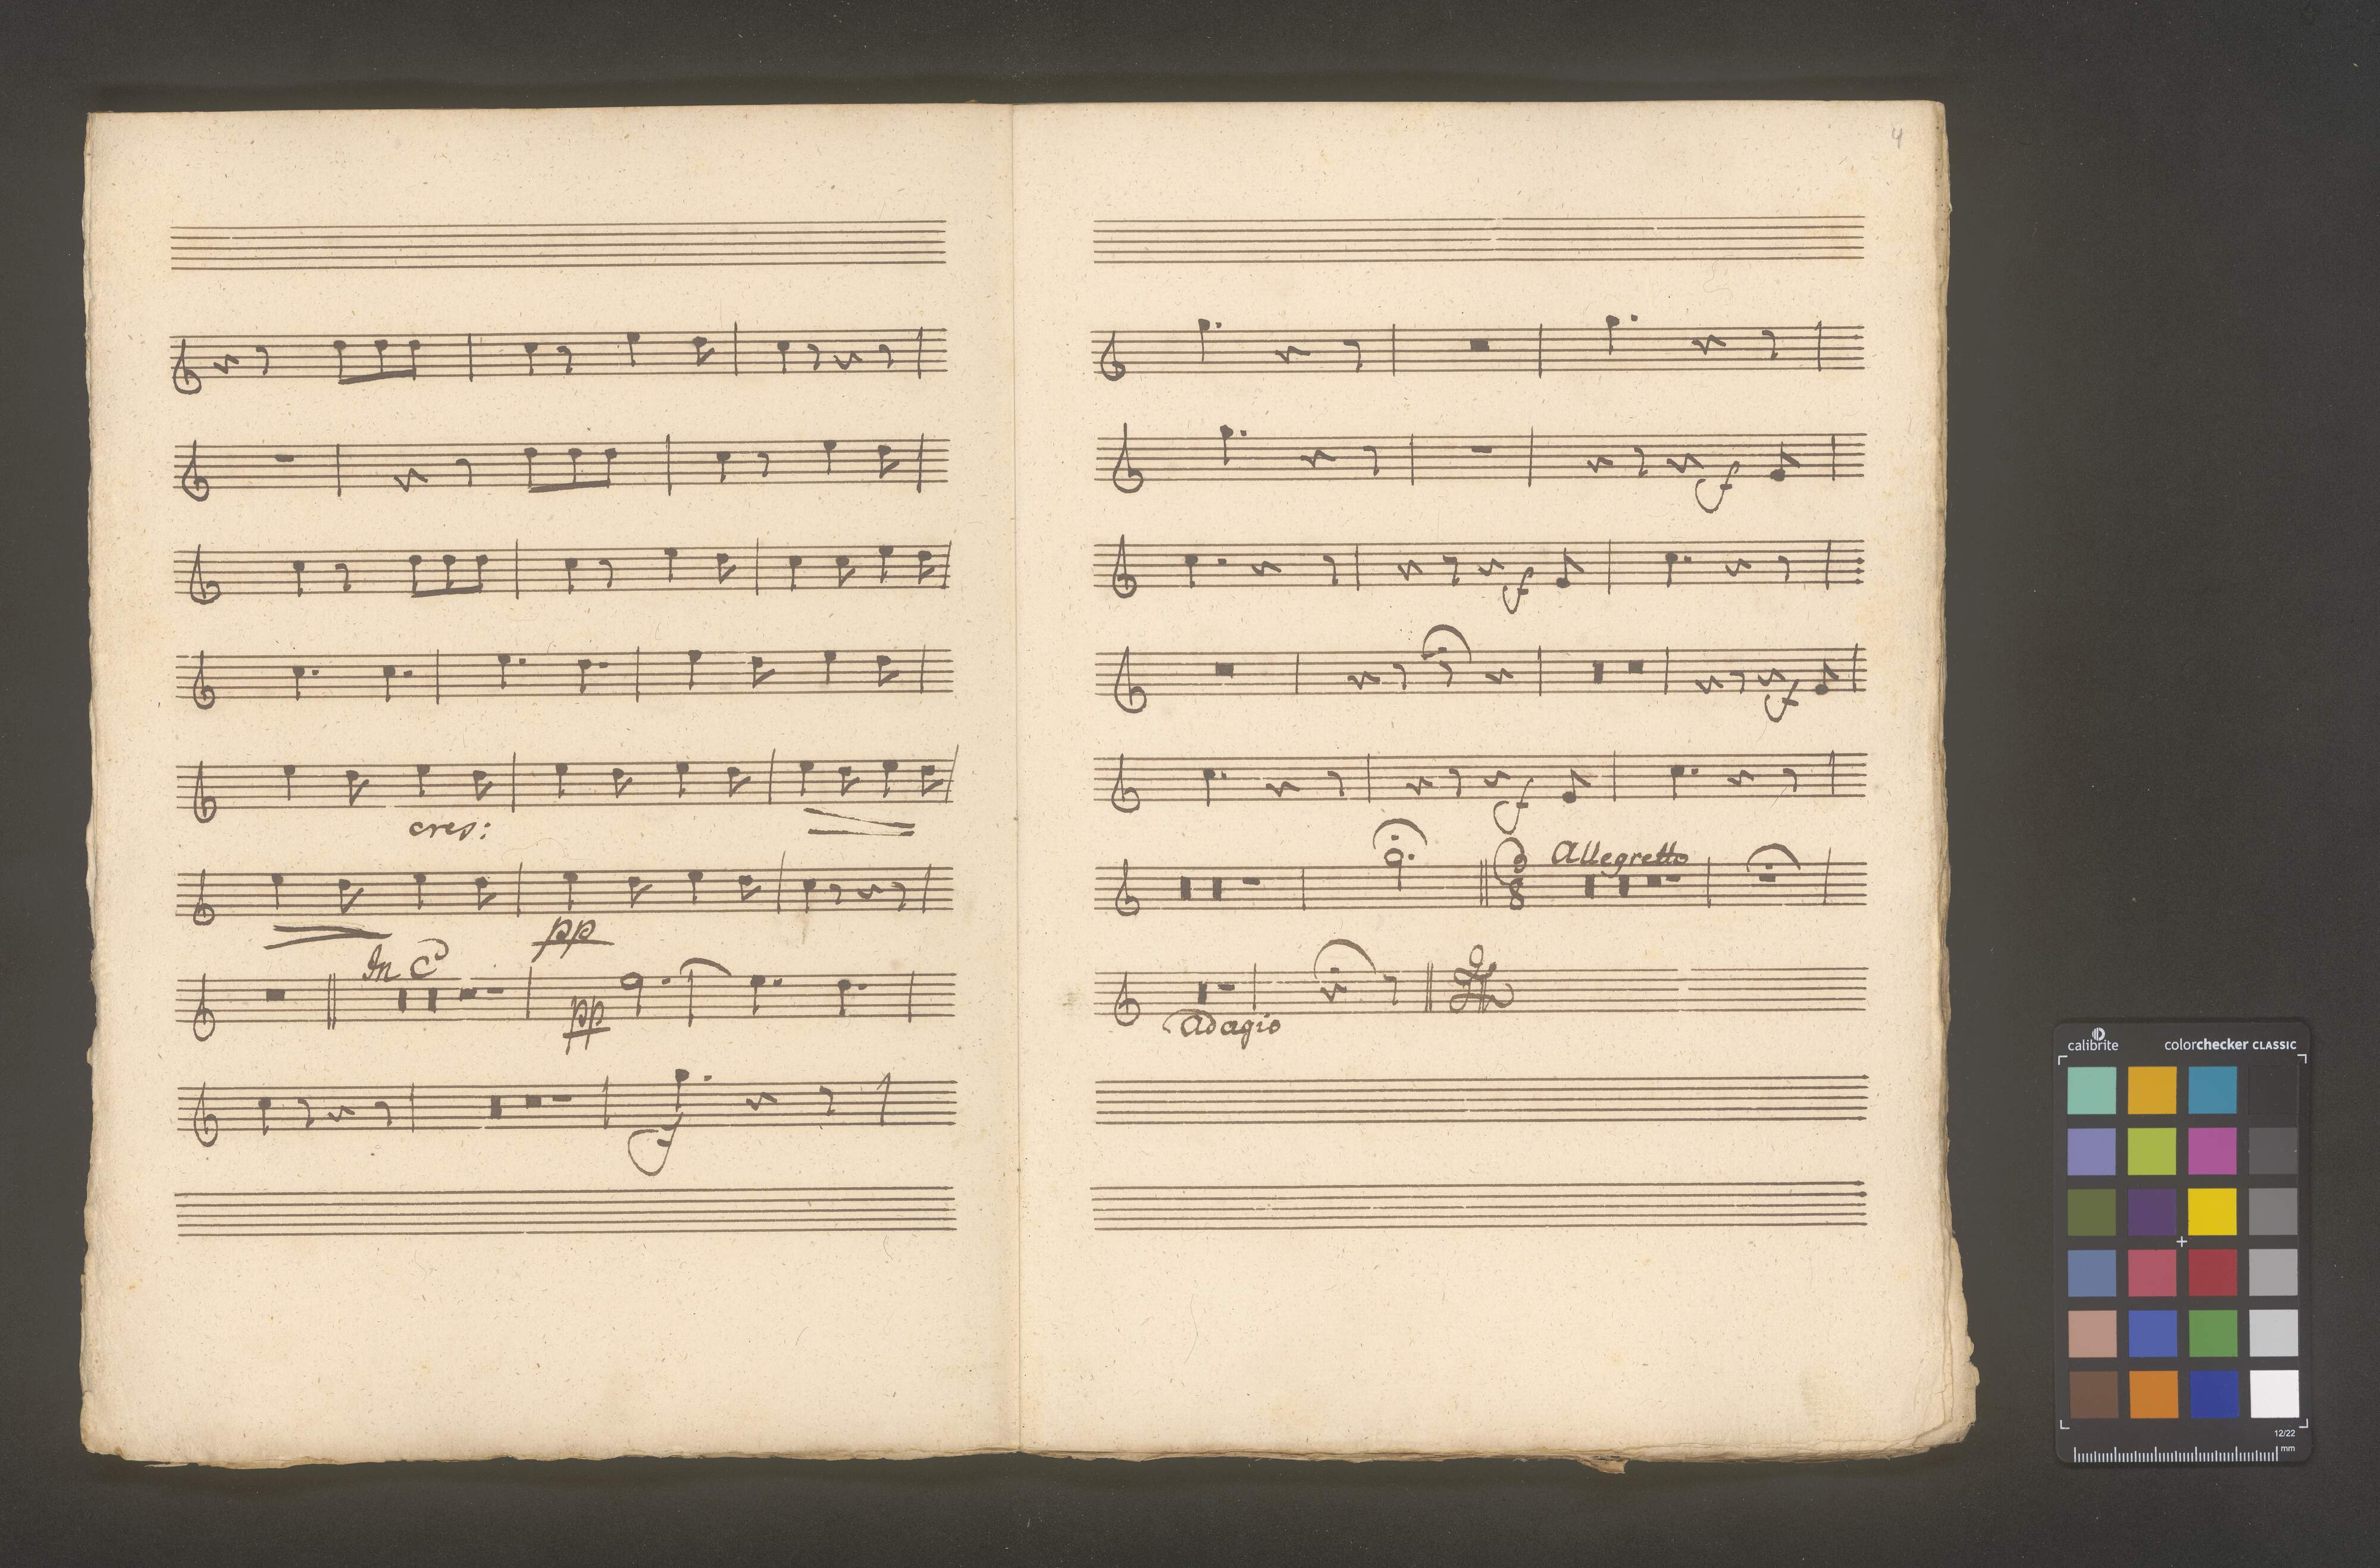 cres:
pp
In C
pp
f
4
f
f
f
f
Allegretto
3
8
Adagio
calibrite
colorchecker CLASSIC
12/22
mm